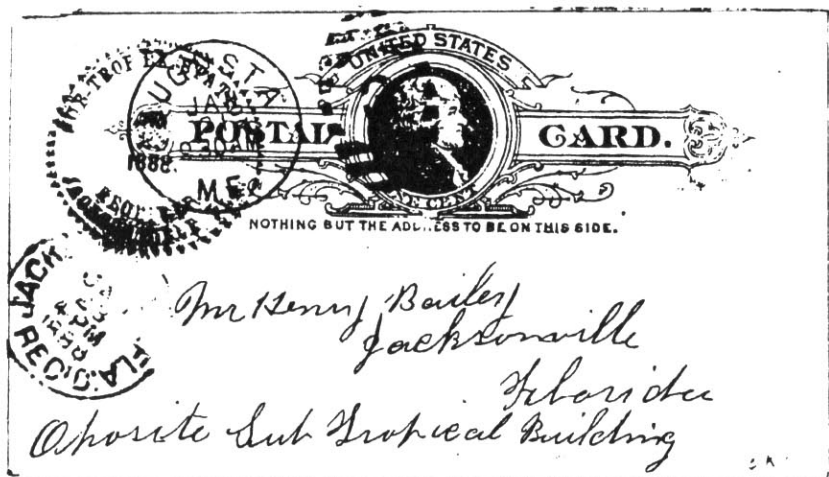 UNITED STATES
POSTAL CARD.
ONE CENT
NOTHING BUT THE ADDRESS TO BE ON THIS SIDE.
SUB-TROP EX
AUGUSTA
JAN
1888
ME.
JACK
REC'D.
FLA.
Mr Henry Bailey
Jacksonville
Florida
Oposite Sub Tropical Building